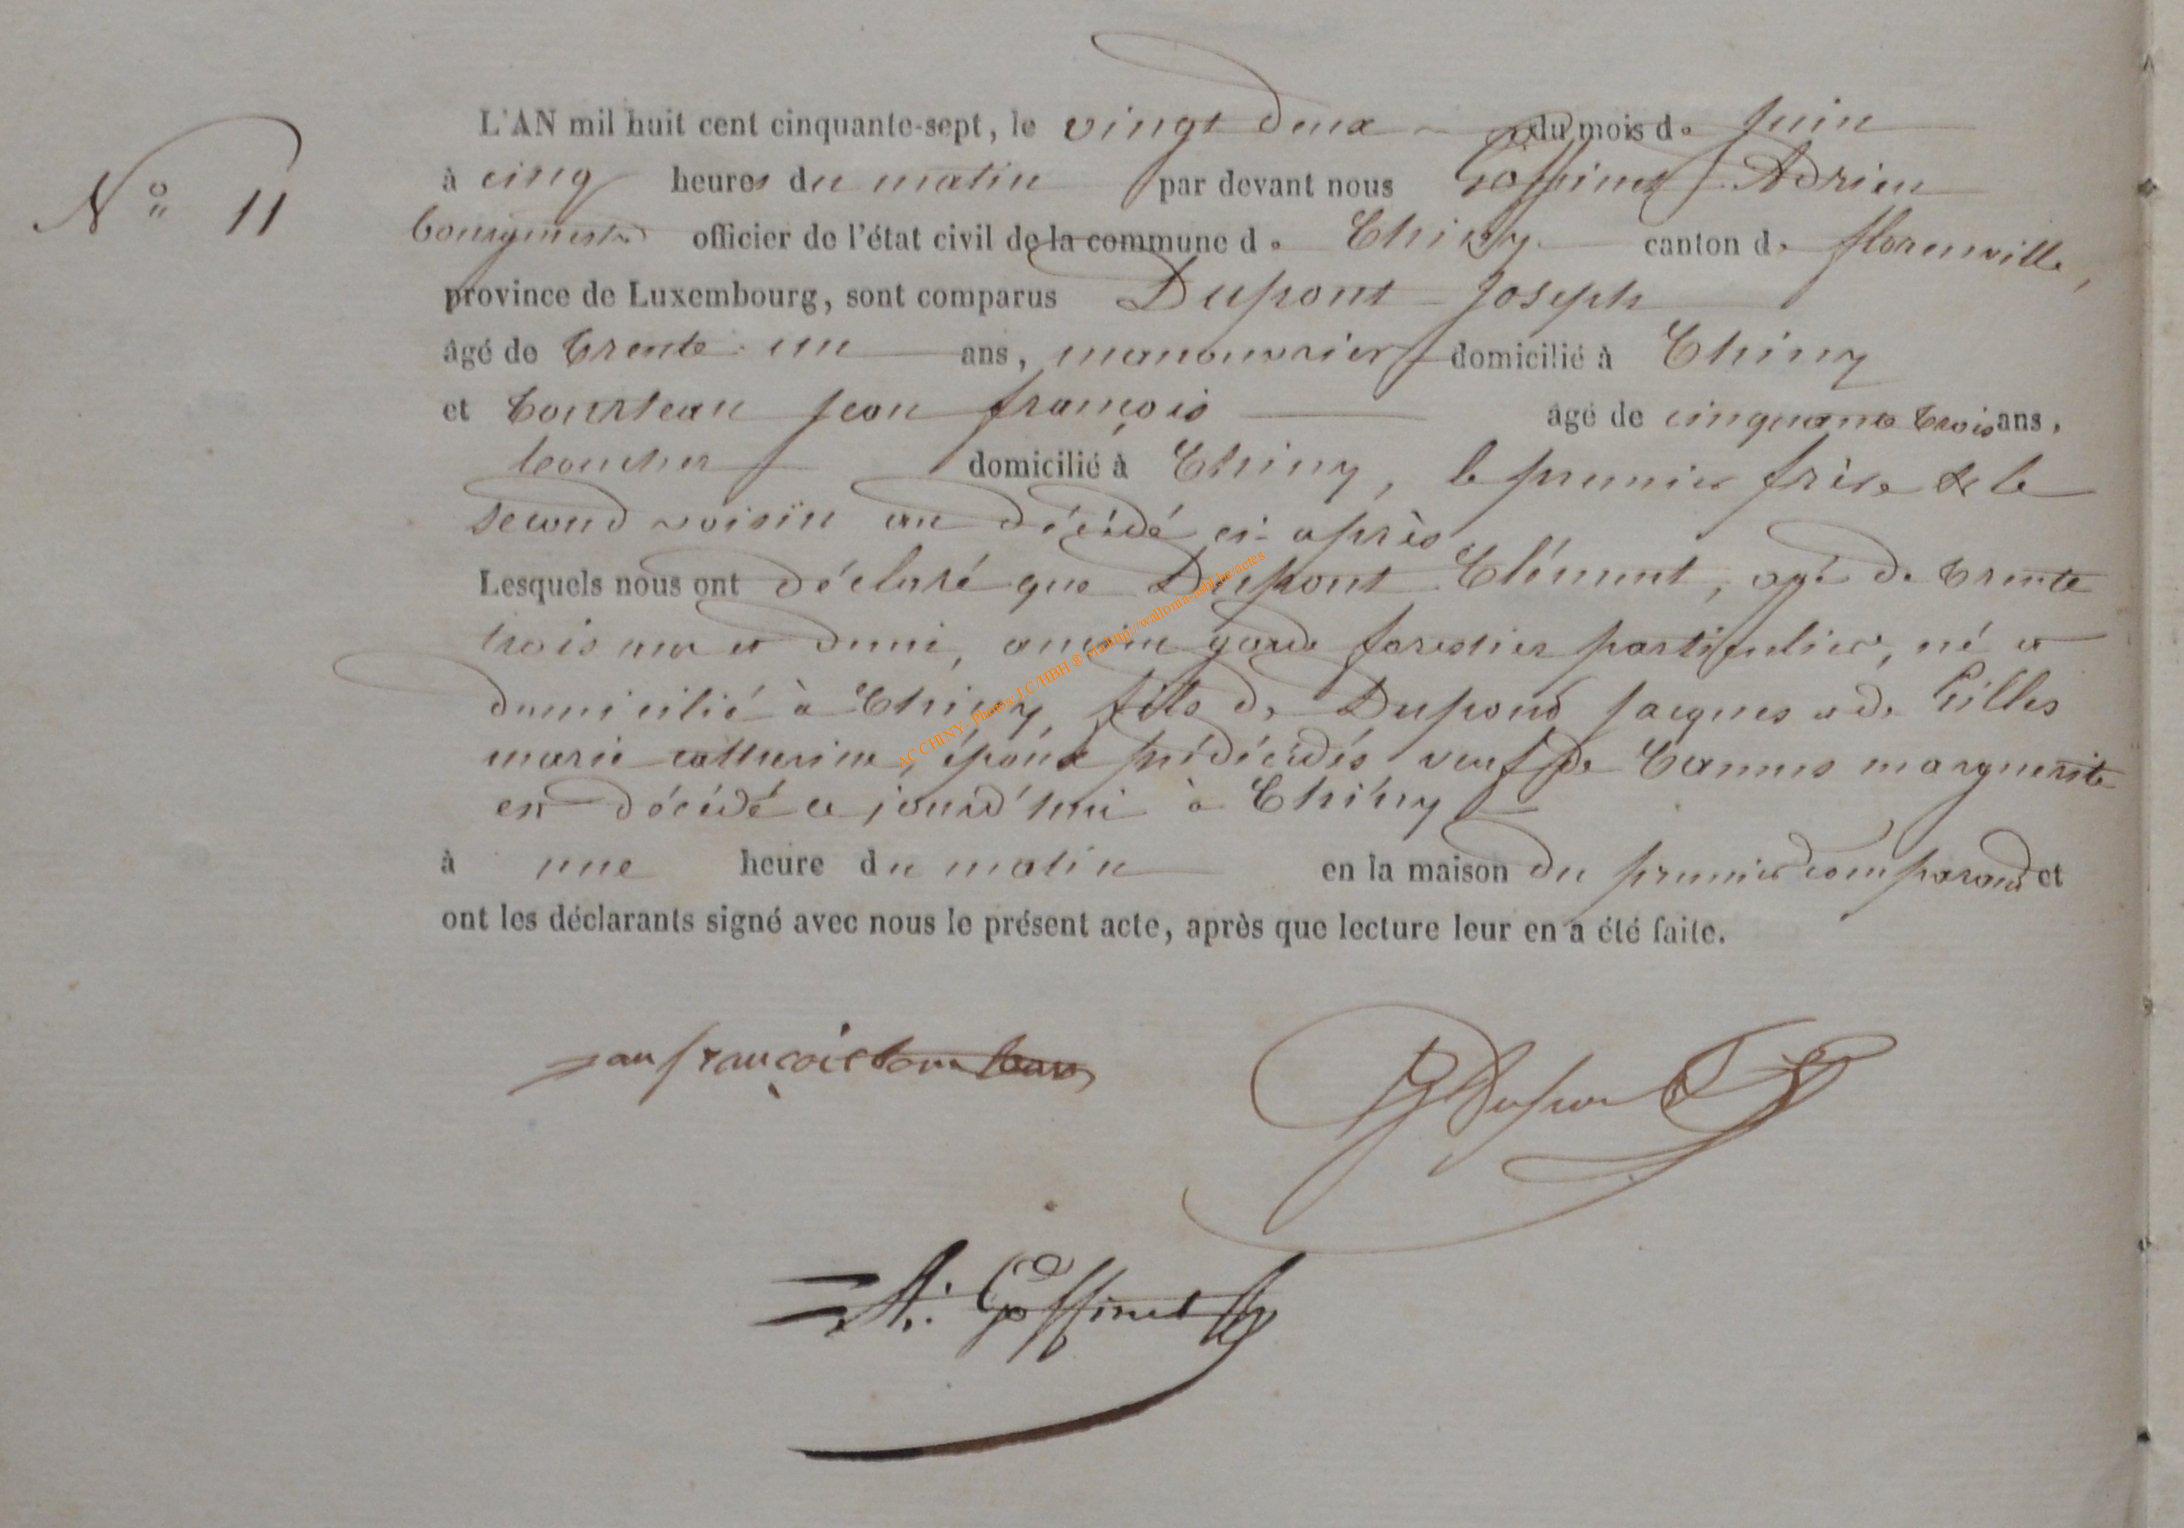 N° 11
L'AN mil huit cent cinquante-sept, le vingt deux du mois de Juin
à cinq heures du matin par devant nous Goffinet Adrien
bourgmestre officier de l'état civil de la commune de Chiny canton de florenville,
province de Luxembourg, sont comparus Dupont Joseph
âgé de trente un ans, manouvrier domicilié à Chiny
et tourteau jean françois âgé de cinquante trois ans,
domicilié à Chiny, le premier frère & le
second voisin au décédé ci-après
Lesquels nous ont déclaré que Dupont Clément, agé de trente
trois ans et demi, ancien garde forestier particulier, né et
domicilié à Chiny, fils de Dupond jacques et de Gilles
marie catherine, époux prédécédés veuf de marguerite
est décédé ce jourd'hui à Chiny
à une heure du matin en la maison du premier comparant et
ont les déclarants signé avec nous le présent acte, après que lecture leur en a été faite.
jan françois tourteau
J Dupont
A. Goffinet